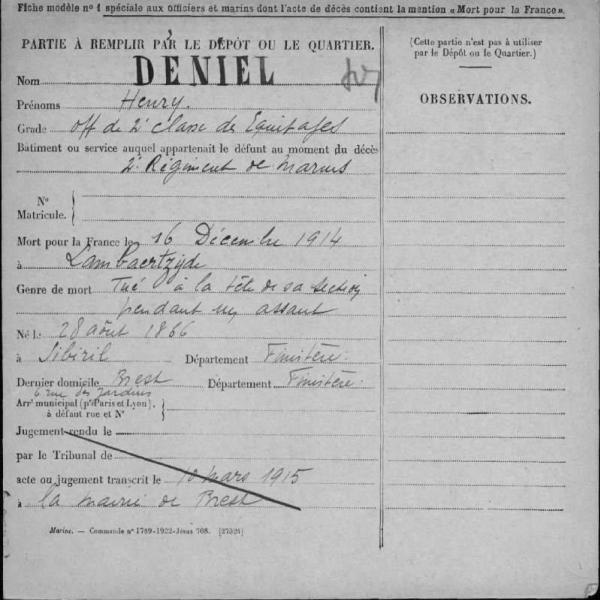 Fiche modèle nº 1 spéciale aux officiers et marins dont l'acte de décès contient la mention « Mort pour la France ».
PARTIE À REMPLIR PAR LE DÉPÔT OU LE QUARTIER.
Nom DENIEL
Prénoms Henry.
Grade off de 2e classe des Equipages
Batiment ou service auquel appartenait le défunt au moment du décès
2e Régiment de Marins
Nº
Matricule.
Mort pour la France le 16 Décembre 1914
à Lambaertzyde
Genre de mort Tué à la tête de sa section
pendant un assaut
Né le 28 août 1866
à Sibiril Département Finistère.
Dernier domicile Brest Département Finistère.
6 rue des Jardins
Arrt municipal (pr Paris et Lyon).
à défaut rue et Nº
Jugement rendu le
par le Tribunal de
acte ou jugement transcrit le 10 mars 1915
à la mairie de Brest
Marine. — Commande nº 1789-1922-Jésus 708. (27324)
(Cette partie n'est pas à utiliser
par le Dépôt ou le Quartier.)
OBSERVATIONS.